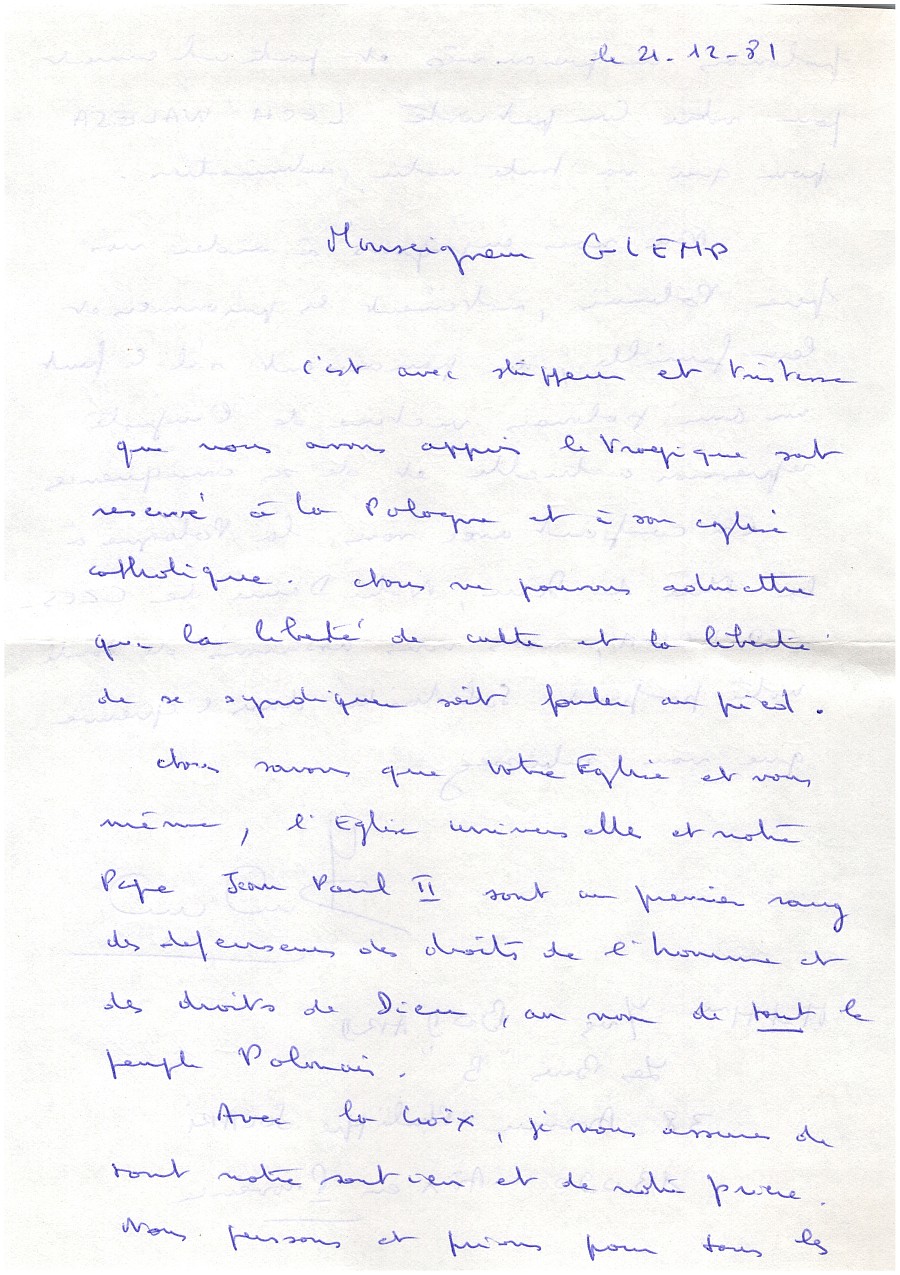 le 21-12-81
Monseigneur GLEMP
C'est avec stuppeur et tristesse
que nous avons appris le tragique sort
reservé à la Pologne et à son eglise
catholique. Nous ne pouvons admettre
que la liberté de culte et la liberté
de se syndiquer soit fouler au pied.
Nous savons que votre Eglise et vous
même, l'Eglise universelle et notre
Pape Jean Paul II sont au premier rang
des defenseurs des droits de l'homme et
des droits de Dieu, au nom de tout le
peuple Polonais.
Avec la Croix, je vous assure de
tout notre soutien et de notre priere.
Nous pensons et prions pour tous les